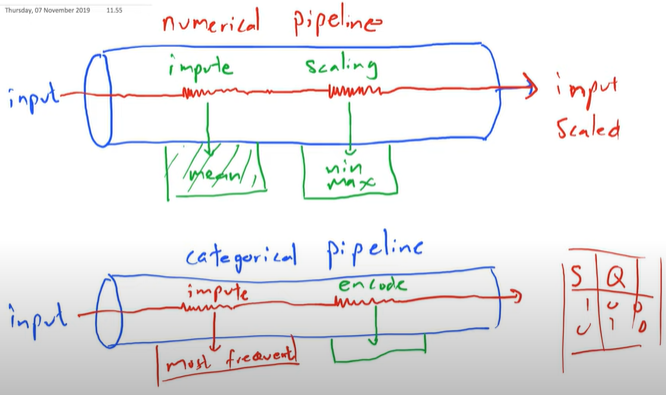 Thursday, 07 November 2019 11.55
numerical pipeline
impute scaling
input
imput
scaled
mean
min
max
categorical pipeline
impute encode
input
most frequent
S Q
1 0 0
0 1 0